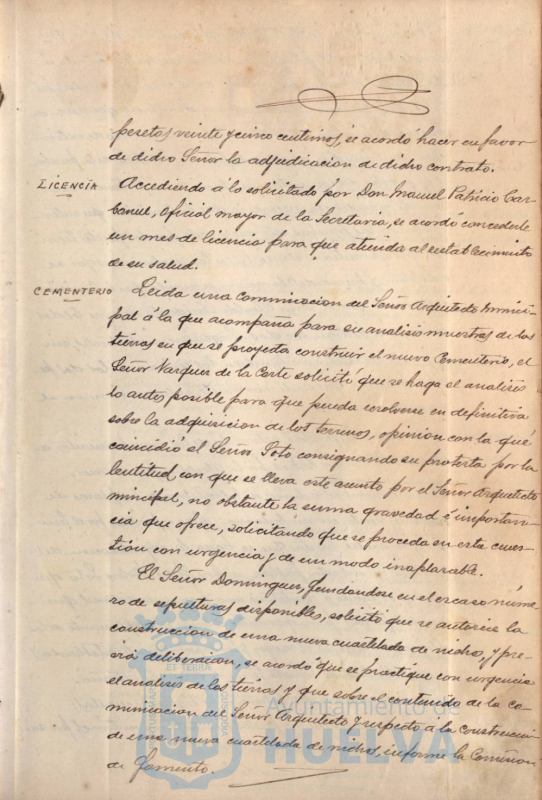 pesetas veinte y cinco centimos, se acordó hacer en favor
de dicho Señor la adjudicacion de dicho contrato.
LICENCIA
Accediendo á lo solicitado por Don Manuel Patricio Gar-
banul, Oficial mayor de la Secretaria, se acordó concederle
un mes de licencia para que atienda al establecimiento
de su salud.
CEMENTERIO
Leida una comunicacion del Señor Arquitecto munici-
pal á la que acompaña para su analisis muestras de las
tierras en que se proyecta construir el nuevo Cementerio, el
Señor Vazquez de la Corte solicitó que se haga el analisis
lo antes posible para que pueda resolverse en definitiva
sobre la adquisicion de los terrenos, opinion con la que
coincidió el Señor Soto consignando su protesta por la
lentitud con que se lleva este asunto por el Señor Arquitecto
municipal, no obstante la suma gravedad é importan-
cia que ofrece, solicitando que se proceda en esta cues-
tión con urgencia y de un modo inaplazable.
El Señor Dominguez, fundandose en el escaso núme-
ro de sepulturas disponibles, solicitó que se autorice la
construccion de una nueva cuartelada de nichos, y pre-
via deliberacion, se acordó que se practique con urgencia
el analisis de las tierras y que sobre el contenido de la co-
municacion del Señor Arquitecto y respecto á la construccion
de una nueva cuartelada de nichos, informe la Comision
de Fomento.
Ayuntamiento de
HUELVA